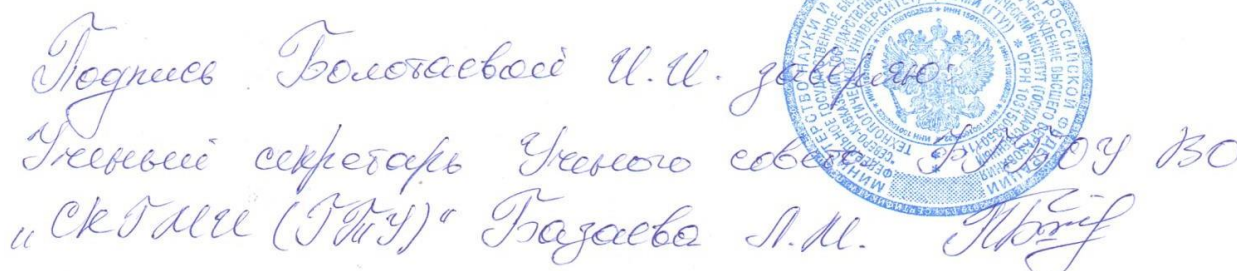 Подпись Болотаевой И.И. заверяю.
Ученый секретарь Ученого совета ФГБОУ ВО
„СКГМИ (ГТУ)" Базаева Л.М.